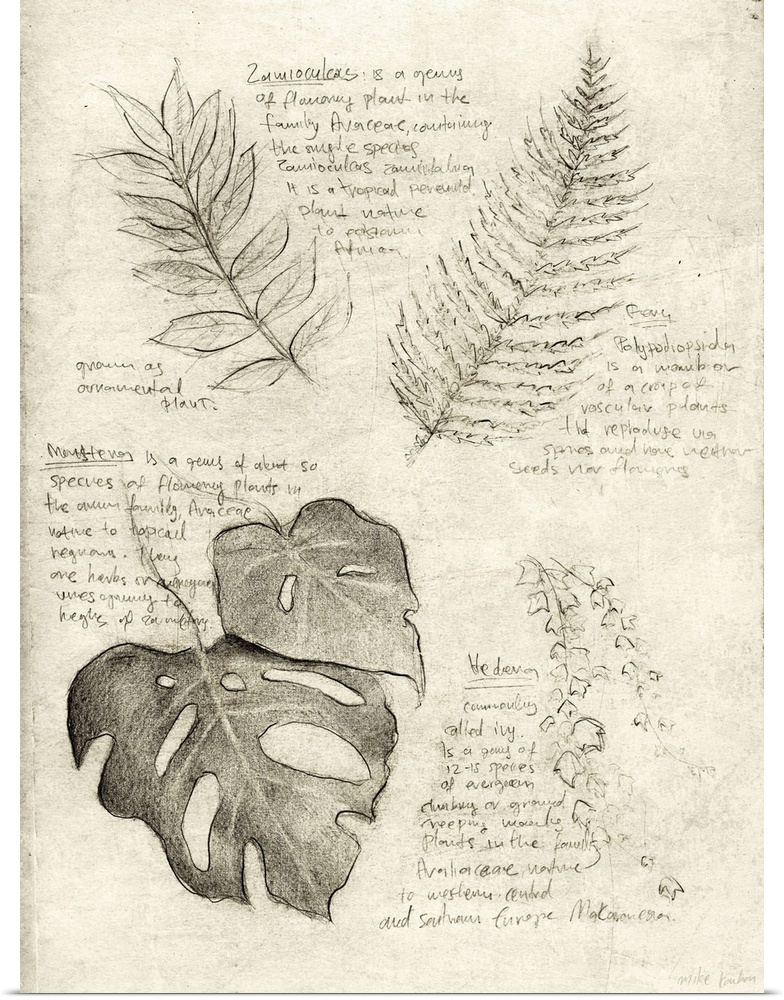 Zamioculcas: is a genus
of flowerey plant in the
family Araceae, containing
the single species
Zamioculcas
It is a tropical perenial
plant native
to eastern
African
grown as
ornamental
plant.
Fern
Polypodiopsida
is a member
of a group of
vascular plants
that reproduse via
spores and have neither
seeds nor flowers
Monstera is a genus of about 50
species of flowerey plants in
the arum family, Araceae
native to tropical
regions. They
are herbs or evergreen
vines growing to
heighs of 20 meters.
Hedera
commonley
called ivy.
Is a genus of
12-15 species
of evergreen
climbing or ground
creeping woody
plants in the family
Araliaceae, native
to western, central
and southern Europe Makaronesia.
mike